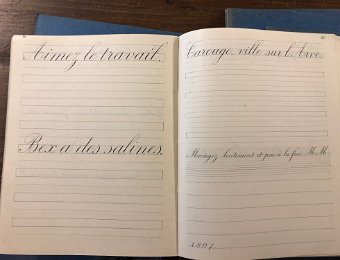 Aimez le travail.
Bex a des salines.
Carouge, ville sur l'Arve.
Mangez lentement et peu à la fois. M. M.